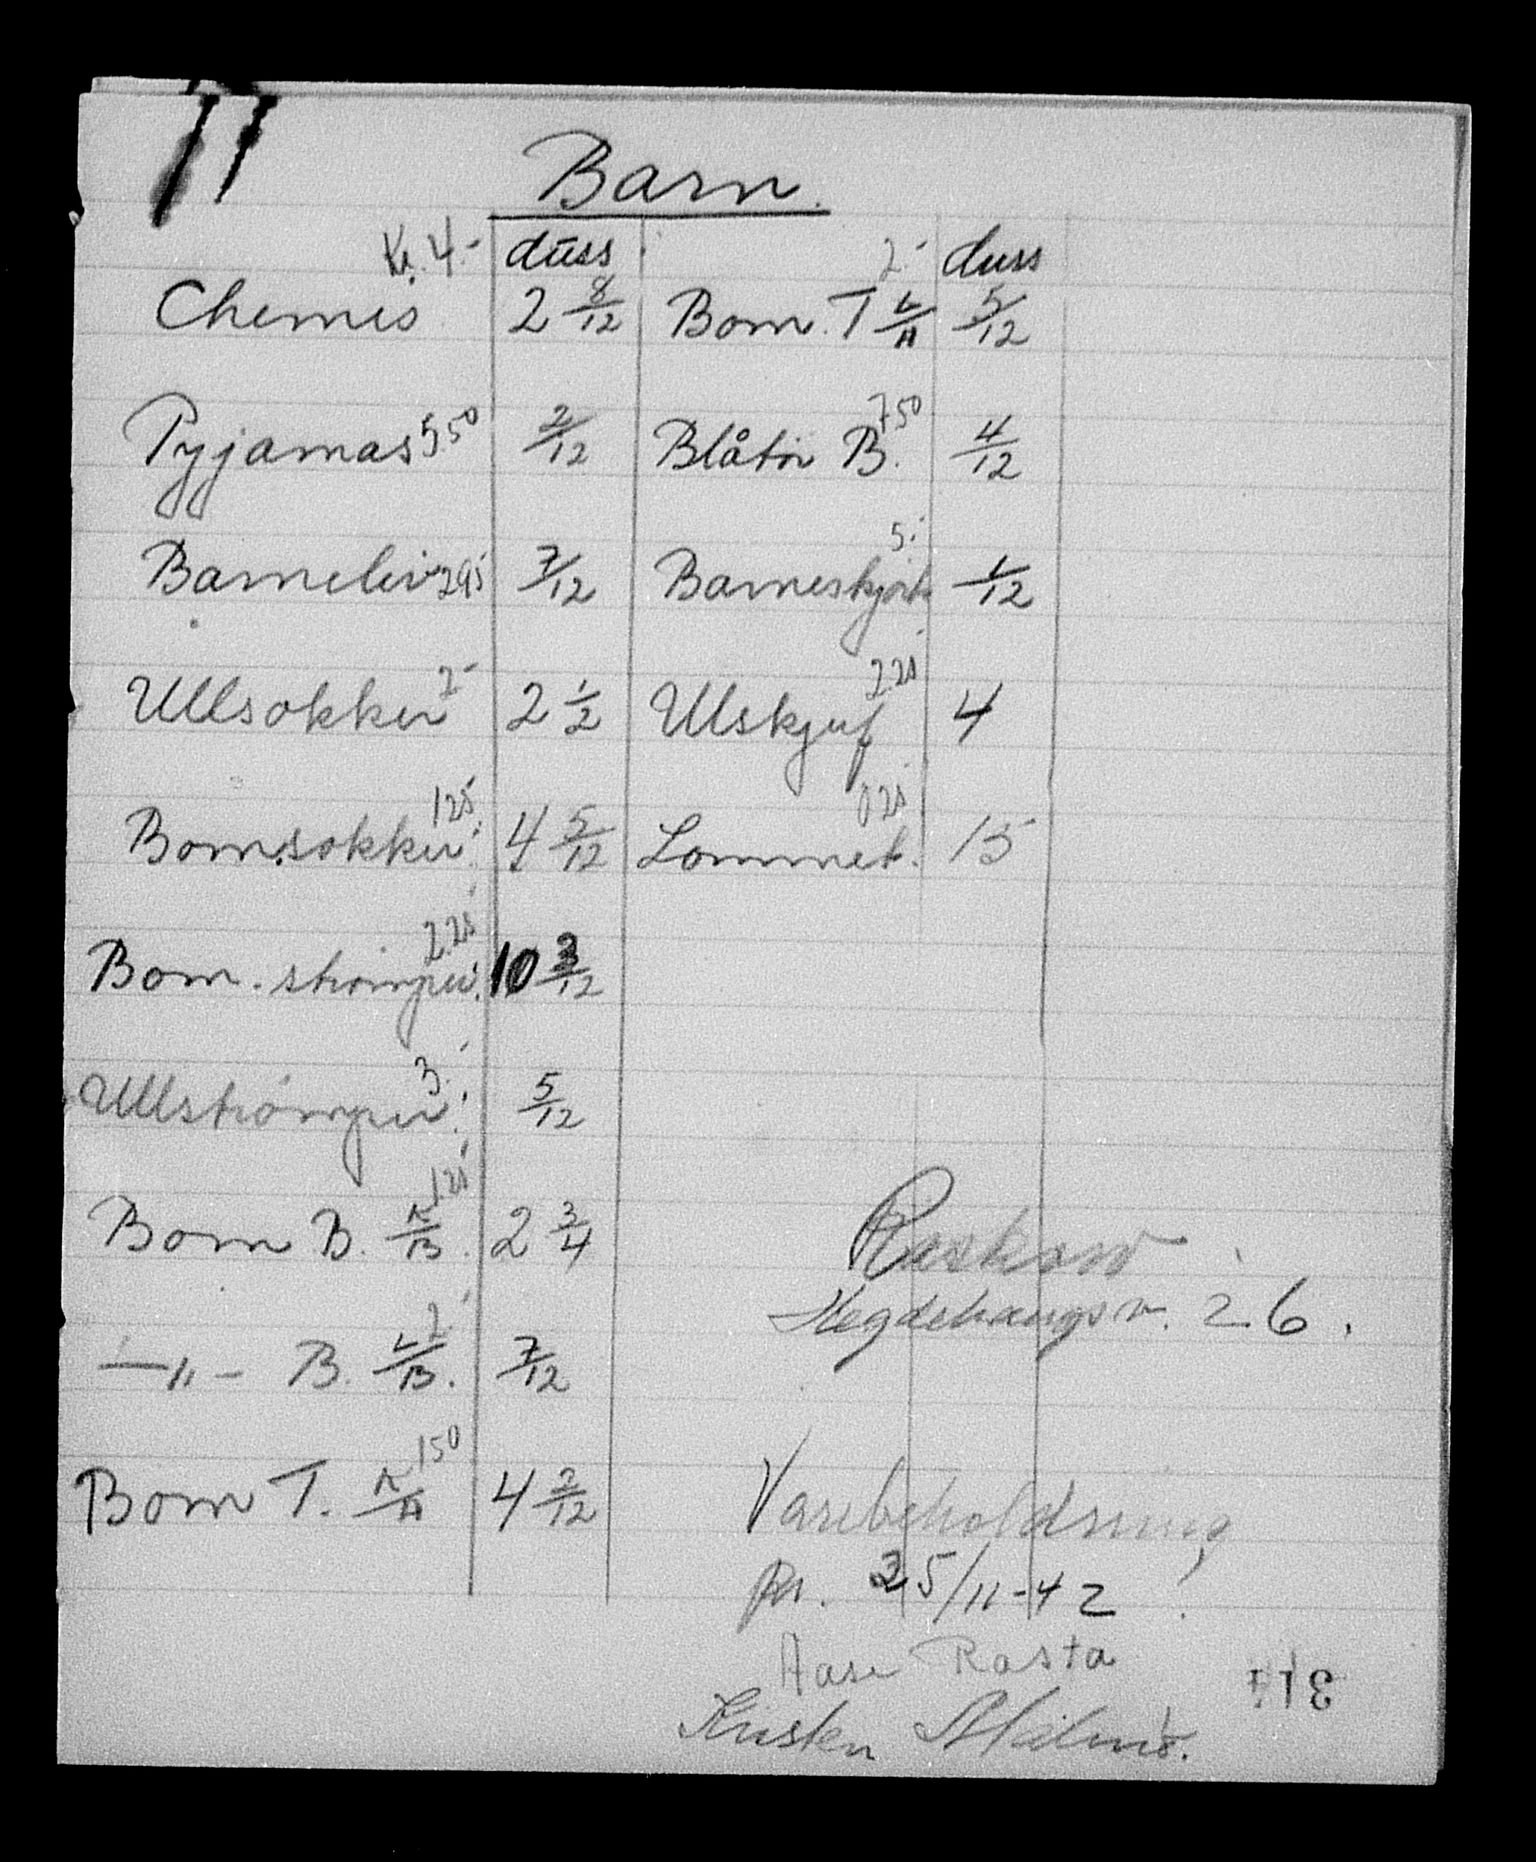 Barn.
Kr. 4.- duss 2.- duss
Chemis 2 8/12 Bom. T L/A 5/12
Pyjamas 5 50 2/12 Blåtöi B. 7 50 4/12
Barneliv 2 95 7/12 Barneskjört 5.- 1/12
Ullsokker 2.- 2 1/2 Ulskjerf 2 25 4
Bom.sokker 1 25 4 5/12 Lommet. 0 25 15
Bom. strömper 2 25 10 3/12
Ullströmper 3.- 5/12
Bom B. K/B. 1 25 2 3/4
—"— B. L/B. 2.- 7/12
Bom T. K/A 1 50 4 2/12
Raskow
Hegdehaugsv. 26.
Varebeholdning
pr. 25/11-42
Aase Rasta
Kirsten
311